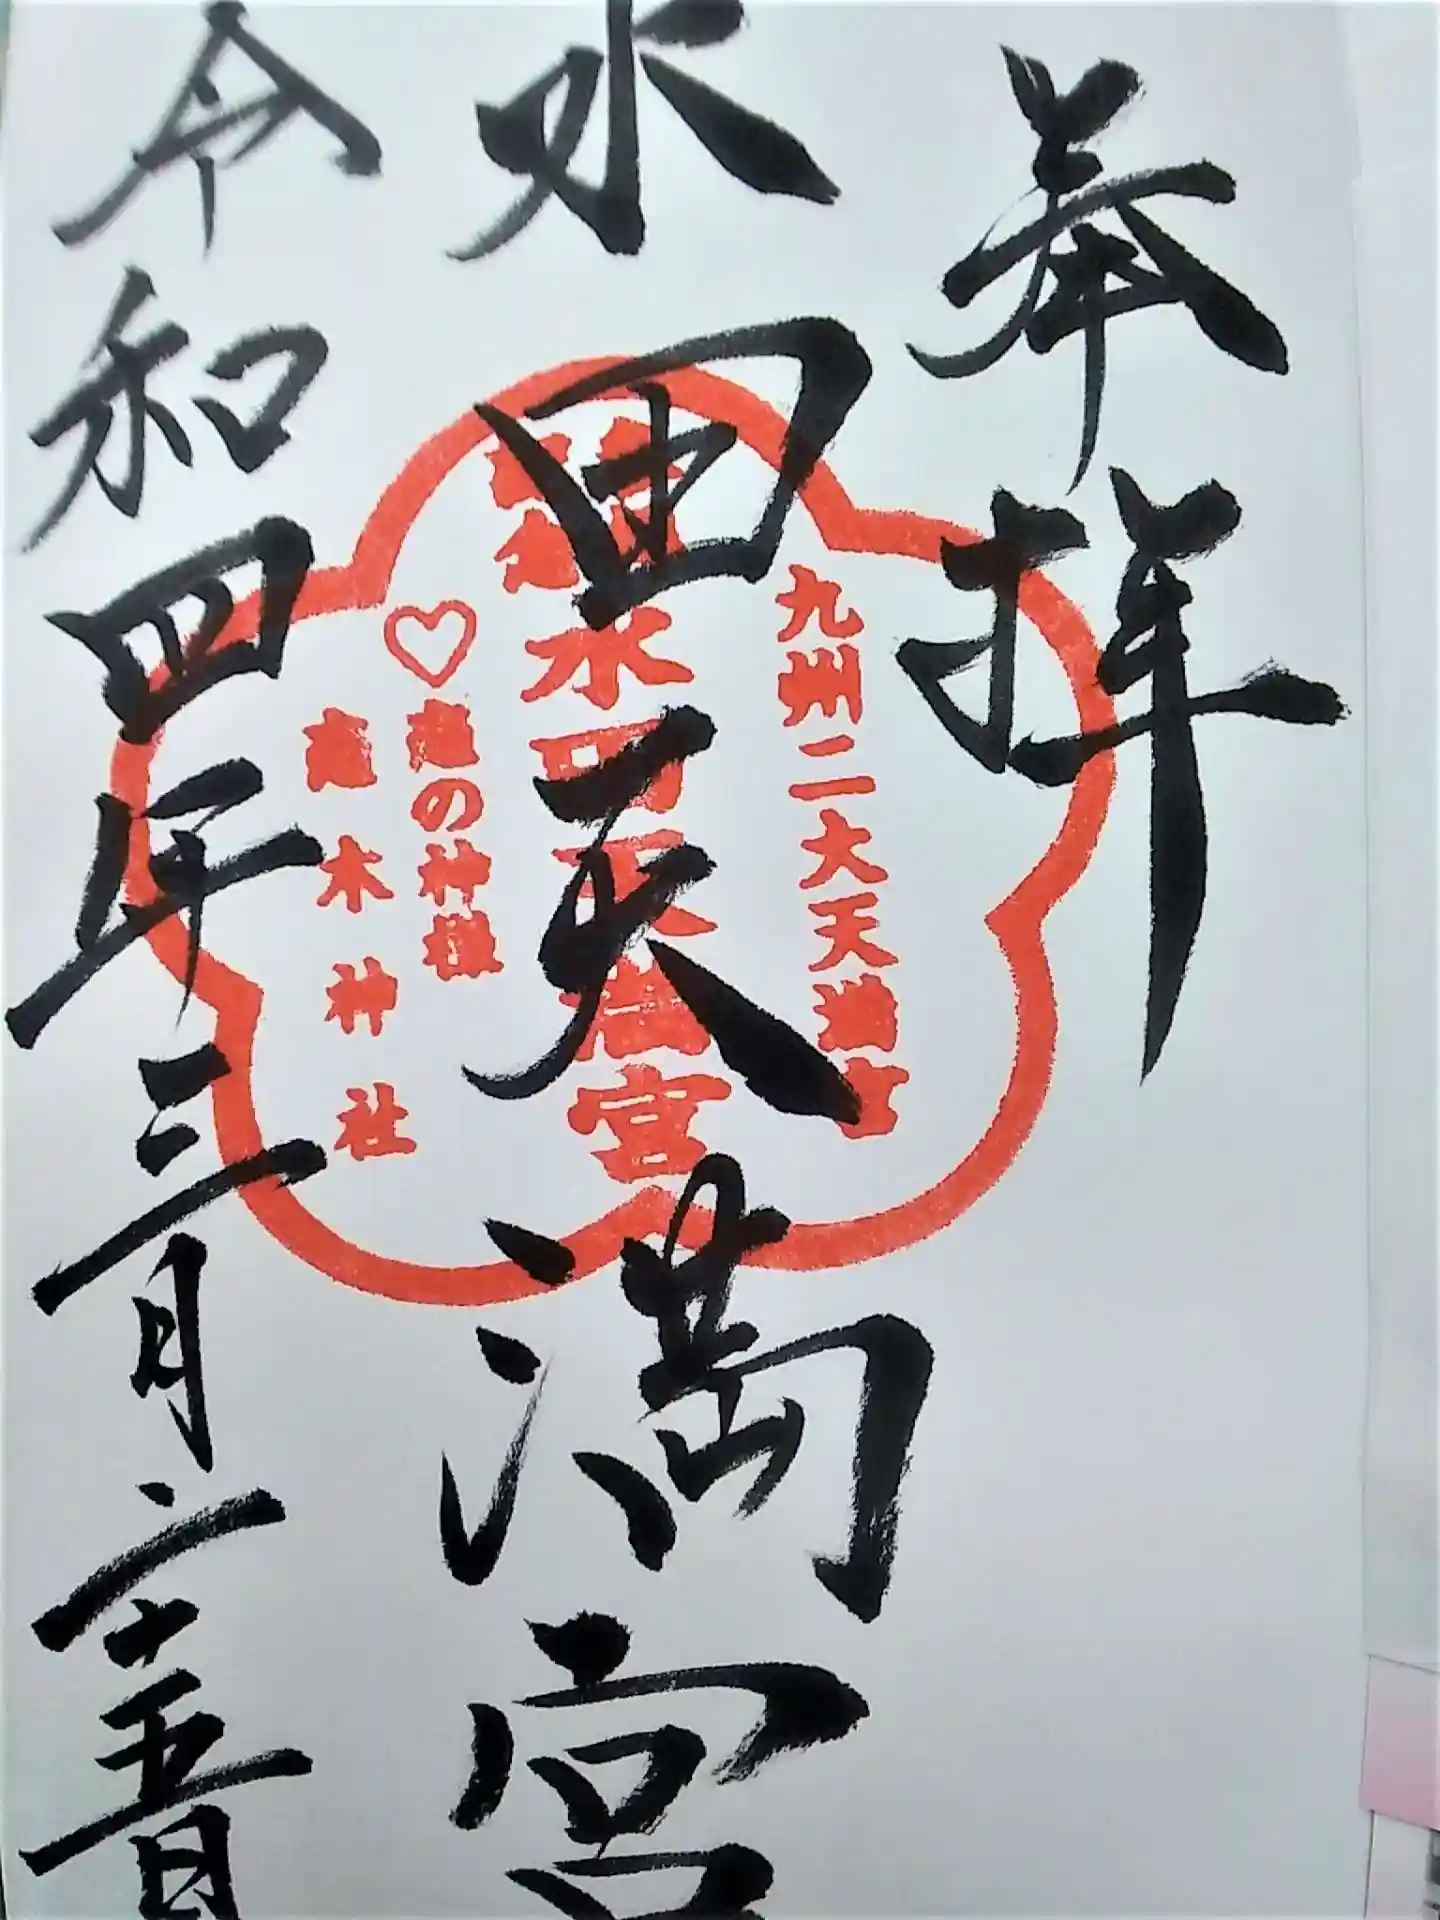 奉拝
九州二大天満宮
水田天満宮
水田天満宮
♡恋の神様
恋木神社
令和四年三月二十五日